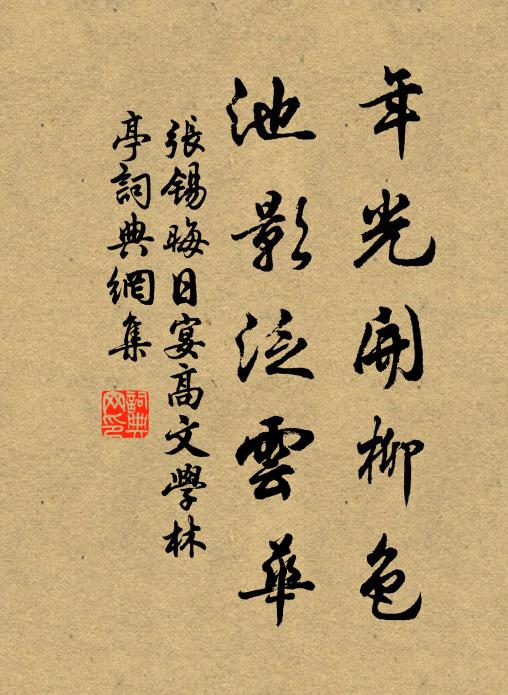 年光開柳色
池影泛雲華
張錫晦日宴高文學林
亭詞典網集
詞典
网印